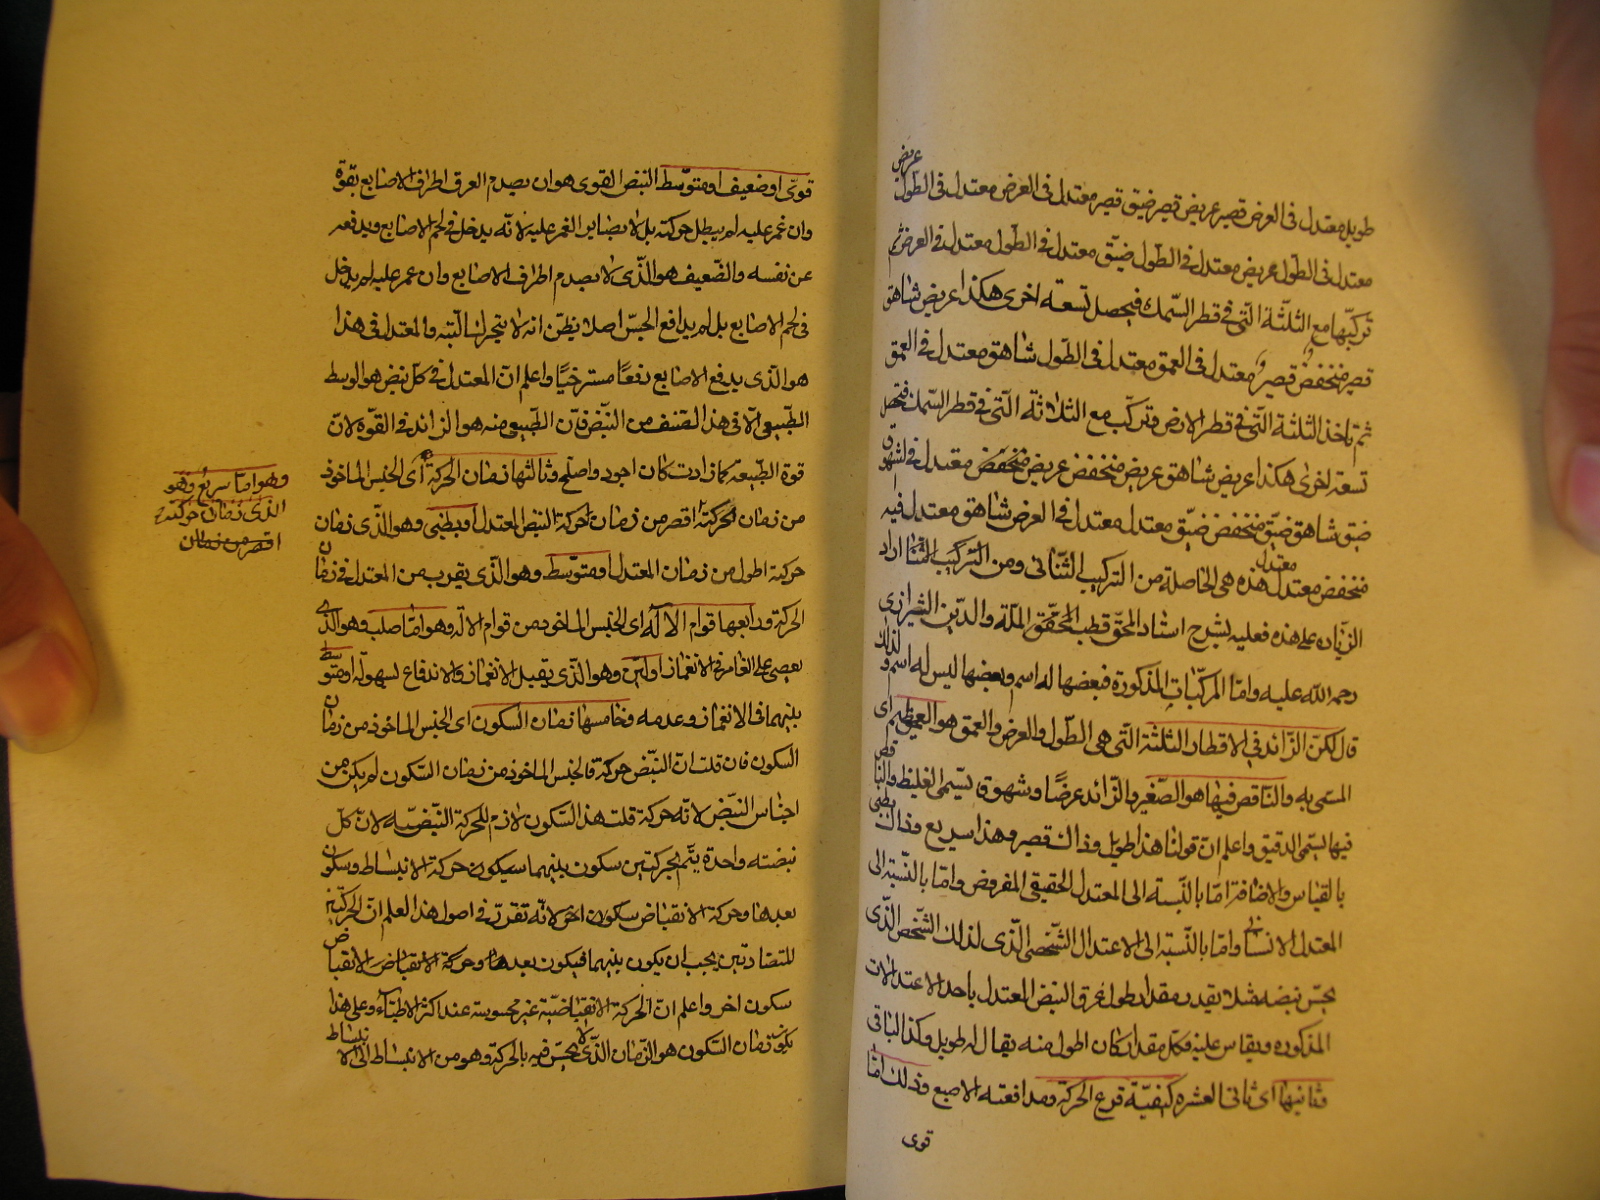 عريض
طويل معتدل فى العرض قصير عريض قصير ضيق قصير معتدل فى العرض معتدل فى الطول
معتدل فى الطول عريض معتدل فى الطول ضيق معتدل فى الطول معتدل فى العرض ثم
تركبها مع الثلثة التى فى قطر السمك فيحصل تسعة اخرى هكذا عريض شاهق
قصير منخفض قصير و معتدل فى العمق معتدل فى الطول شاهق معتدل فى العمق
ثم تاخذ الثلثة التى فى قطر الارض وتركب مع الثلاثة التى فى قطر السمك فتحصل
تسعة اخرى هكذا عريض شاهق عريض منخفض عريض منخفض معتدل فى الشهوق
ضيق شاهق ضيق منخفض ضيق معتدل معتدل فى العرض شاهق معتدل فيه
منخفض معتدل معتدل هذه هى الحاصلة من التركيب الثنائى ومن التركيب الثنا اراد
الزياده على هذه فعليه بشرح استاد المحق قطب المحقق الملة والدين الشيرازى
رحمه الله عليه واما المركبات المذكورة فبعضها له اسم وبعضها ليس له اسم ولذلك
قال لكن الزائد فى الاقطار الثلثة التى هى الطول والعرض والعمق هو العظيم اى
المسمى به والناقص فيها هو الصغير والزائد عرضا وشهوق يسمى الغليظ والناقص
فيها يسمى الدقيق واعلم ان قولنا هذا طويل وذاك قصير وهذا سريع وذاك بطى
بالقياس والاضافة اما بالنسبة الى المعتدل الحقيقى المفروض واما بالنسبة الى
المعتدل الانسانى واما بالنسبة الى الاعتدال الشخصى الذى لذلك الشخص الذى
يجس نبضه مثلا يقدر مقدار طول عرق النبض المعتدل باحد الاعتدالات
المذكوره ويقاس عليه فكل مقدار كان اطول منه يقال له طويل وكذا الباقى
وثانيها اى ثانى العشره كيفية قرع الحركة ومدافعته الاصبع وذلك اما
قوى
قوى او ضعيف او متوسط النبض القوى هو ان يصدم العرق اطراف الاصابع بقوة
وان غمر عليه لم يبطل حركته بل لا يضاير الغمر عليه لانه يدخل فى لحم الاصابع ويدفعه
عن نفسه والضعيف هو الذى لا يصدم اطراف الاصابع وان غمر عليه لم يدخل
فى لحم الاصابع بل لم يدافع الحس اصلا يظن انه لا يتحرك البته والمعتدل فى هذا
هو الذى يدفع الاصابع دفعا مسترخيا واعلم ان المعتدل فى كل نبض هو الوسط
الطبيعى الا فى هذا الصنف من النبض فان الطبيعى منه هو الزائد فى القوة لان
قوة الطبيعه كما زادت كان اجود واصلح وثالثها زمان الحركة اى الجنس الماخوذ
من زمان الحركة اقصر من زمان حركة النبض المعتدل او بطى وهو الذى زمان
وهو اما سريع وهو
الذى زمان حركته
اقصر من زمان
حركة اطول من زمان المعتدل او متوسط وهو الذى يقرب من المعتدل فى زمان
الحركة ورابعها قوام الالة اى الجنس الماخوذ من قوام الالة وهو اما صلب وهو الذى
يعصى على الغامز فى الانغماز او لين وهو الذى يقبل الانغماز والاندفاع لسهولة او متوسط
بينهما فى الانغماز وعدمه وخامسها زمان السكون اى الجنس الماخوذ من زمان
السكون فان قلت ان النبض حركة فالجنس الماخوذ من زمان السكون لم يكن من
اجناس النبض لانه حركة قلت هذا السكون لازم للحركة النبضيه لان كل
نبضته واحدة يتم بحركتين سكون بينهما سيكون حركة الانبساط وسكون
بعدها وحركة الانقباض سكون اخر لانه تقرر فى اصول هذا العلم ان الحركتين
المتضادتين يجب ان يكون بينهما فيكون بعدها وحركة الانقباض الانقباض
سكون اخر واعلم ان الحركة الانقباضية غير محسوسة عند اكثر الاطباء وعلى هذا
يكون زمان السكون هو الزمان الذى لا يحس فيه بالحركة وهو من الانبساط الى الانبساط